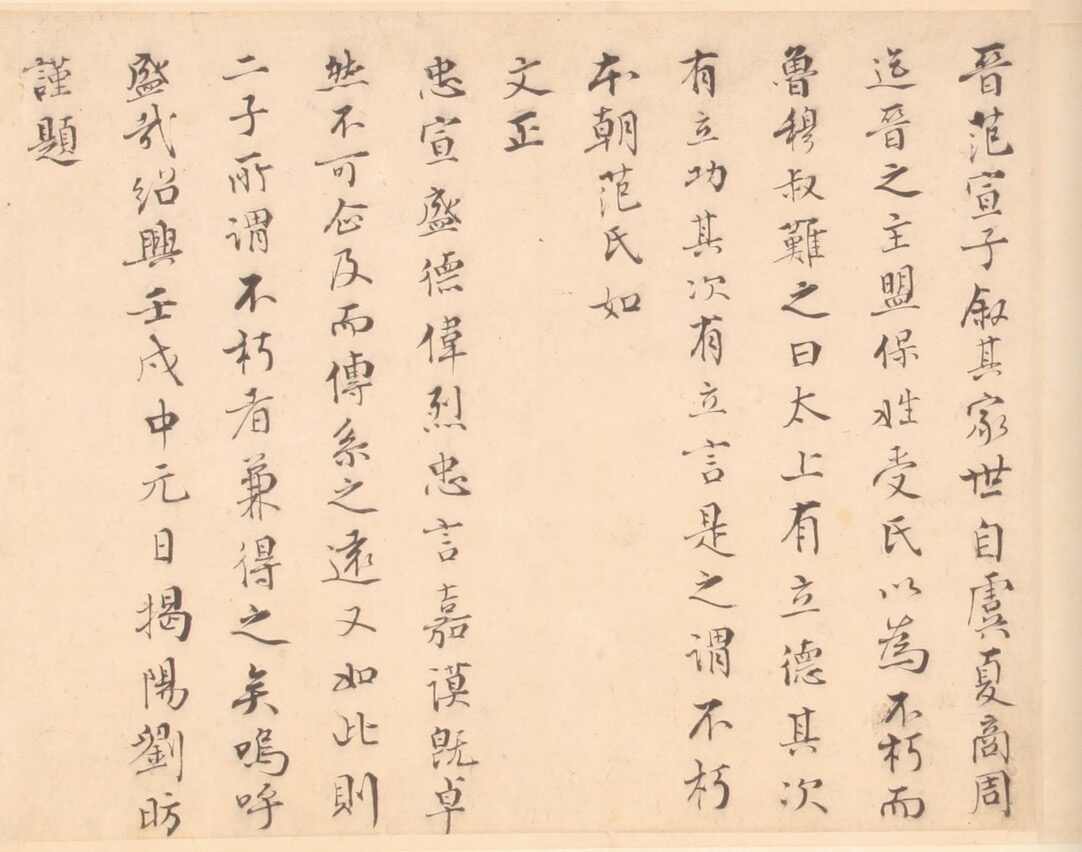 晉范宣子叙其家世自虞夏商周
迄晉之主盟保姓受氏以為不朽而
魯穆叔難之曰太上有立德其次
有立功其次有立言是之謂不朽
本朝范氏如
文正
忠宣盛德偉烈忠言嘉謨旣卓
然不可企及而傳系之遠又如此則
二子所謂不朽者兼得之矣嗚呼
盛哉紹興壬戌中元日揭陽劉昉
謹題